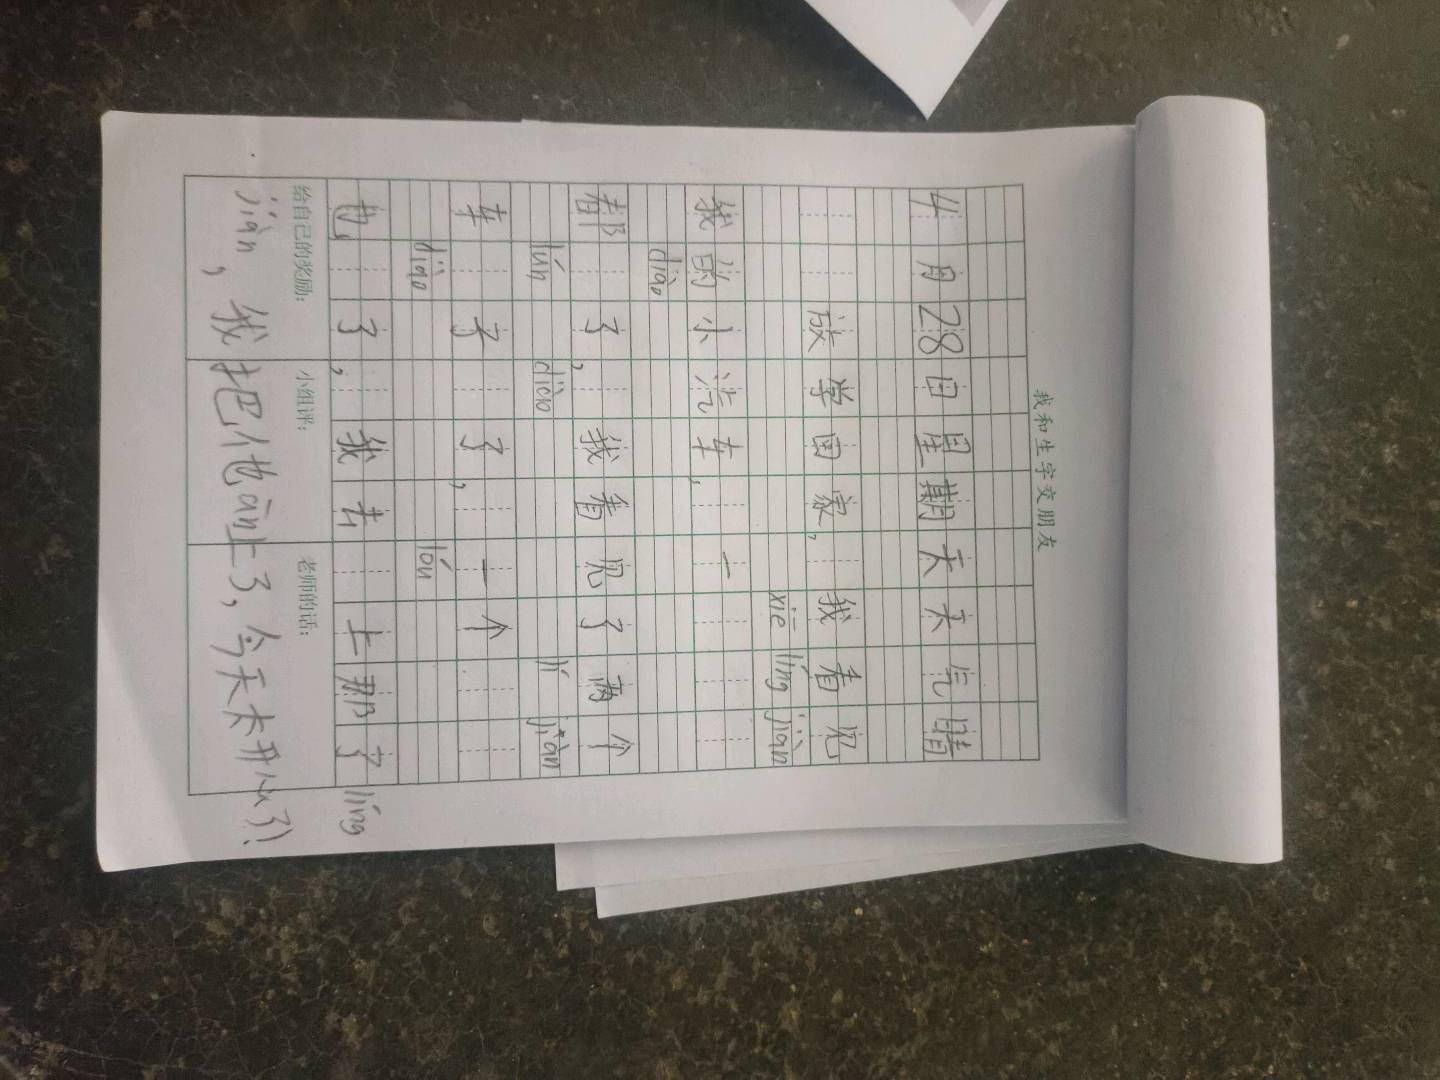 我和生字交朋友
4月28日星期天天气晴
放学回家,我看见
xiē líng jiàn
我的小汽车,一
diào
都了,我看见了两个
lún diào lí jiàn
车子了,一个
diào lóu
也了,我去上那了líng
给自己的奖励: 小组评: 老师的话:
jiàn,我把他ān上了,今天太开心了!